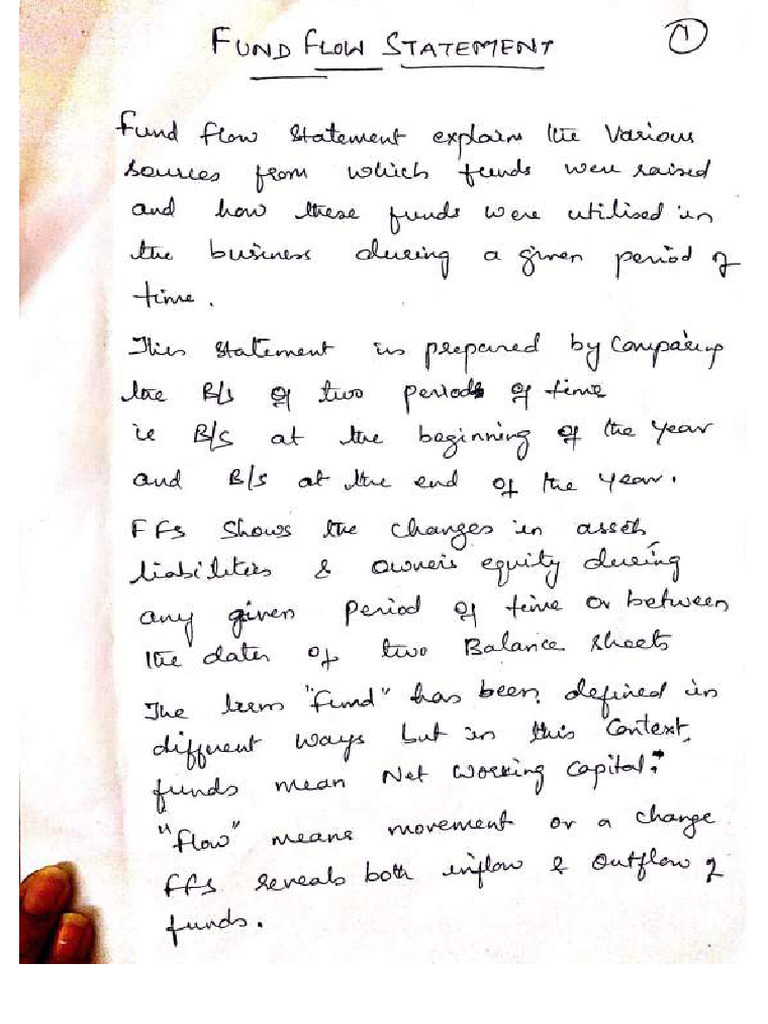 FUND FLOW STATEMENT
1
Fund flow statement explains the various
sources from which funds were raised
and how these funds were utilised in
the business during a given period of
time.
This statement is prepared by Comparing
the B/s of two periods of time
ie B/S at the beginning of the year
and B/s at the end of the year.
FFS shows the changes in assets,
liabilities & owner's equity during
any given period of time or between
the dates of two Balance sheets
The term "fund" has been defined in
different ways but in this context,
funds mean Net working capital.
"flow" means movement or a change
FFS reveals both inflow & outflow of
funds.